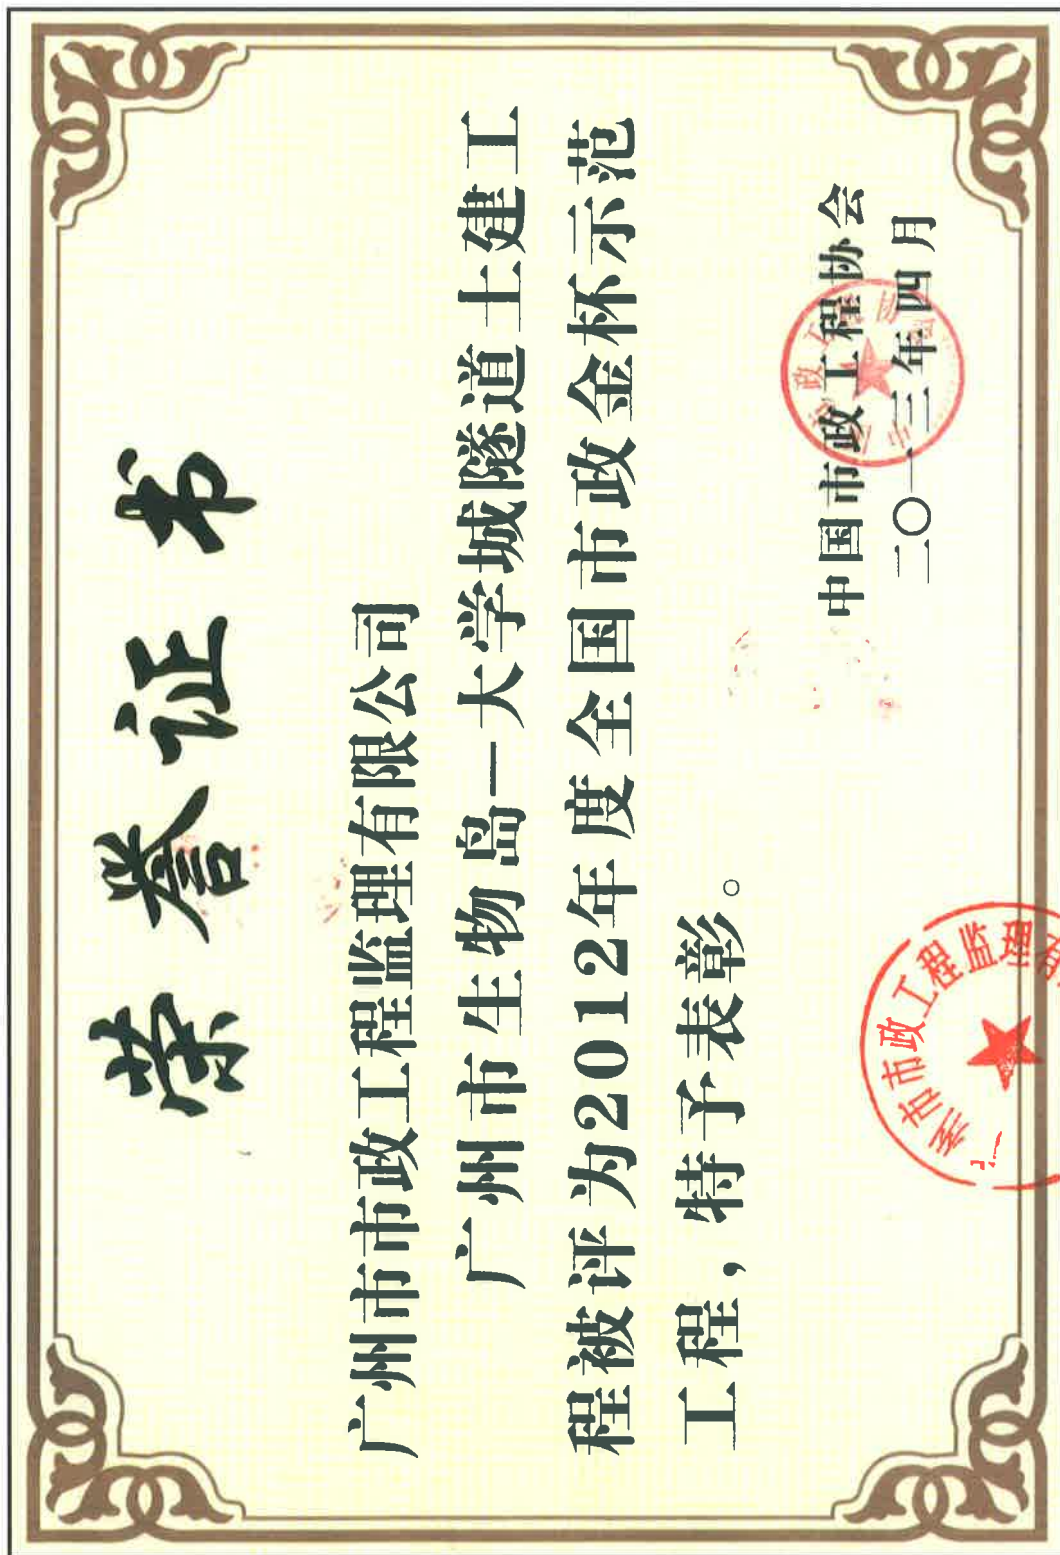 荣誉证书
广州市市政工程监理有限公司
广州市生物岛—大学城隧道土建工
程被评为2012年度全国市政金杯示范
工程，特予表彰。
中国市政工程协会
二〇一三年四月
州市市政工程监理有